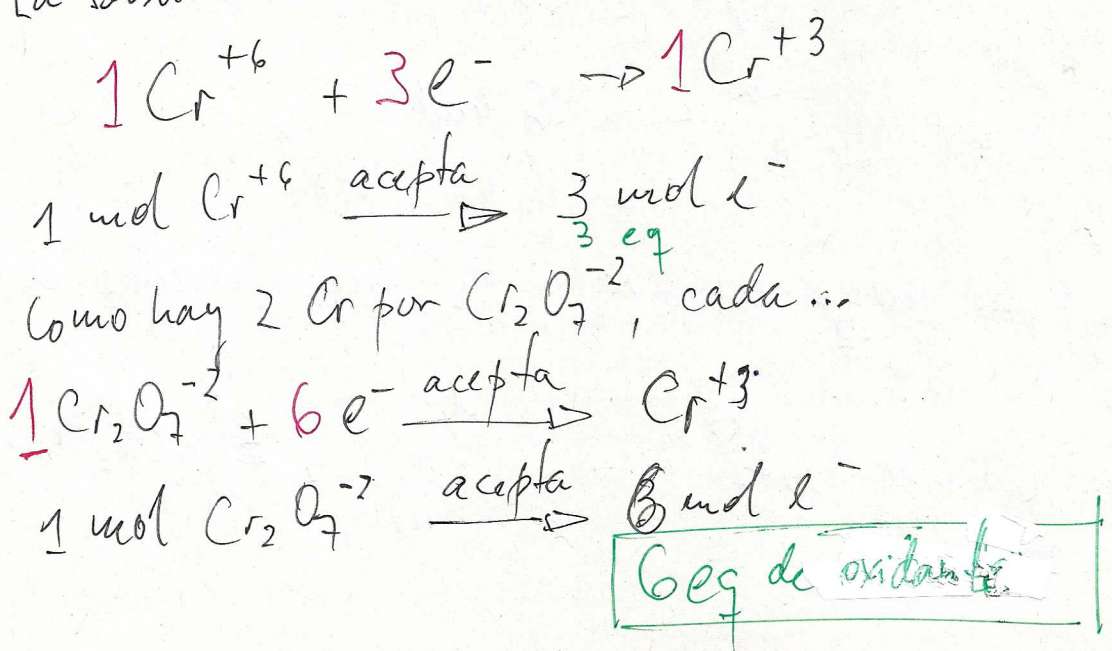 1 Cr⁺⁶ + 3 e⁻ → 1 Cr⁺³
1 mol Cr⁺⁶ acepta → 3 mol e⁻
3 eq
Como hay 2 Cr por Cr₂O₇⁻², cada...
1 Cr₂O₇⁻² + 6 e⁻ acepta → Cr⁺³
1 mol Cr₂O₇⁻² acepta → 6 mol e⁻
6 eq de oxidante